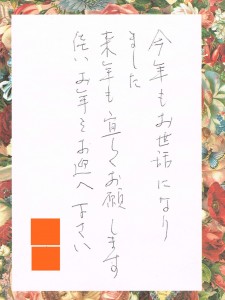 今年もお世話になり
ました
来年も宜しくお願します
佳いお年をお迎へ下さい